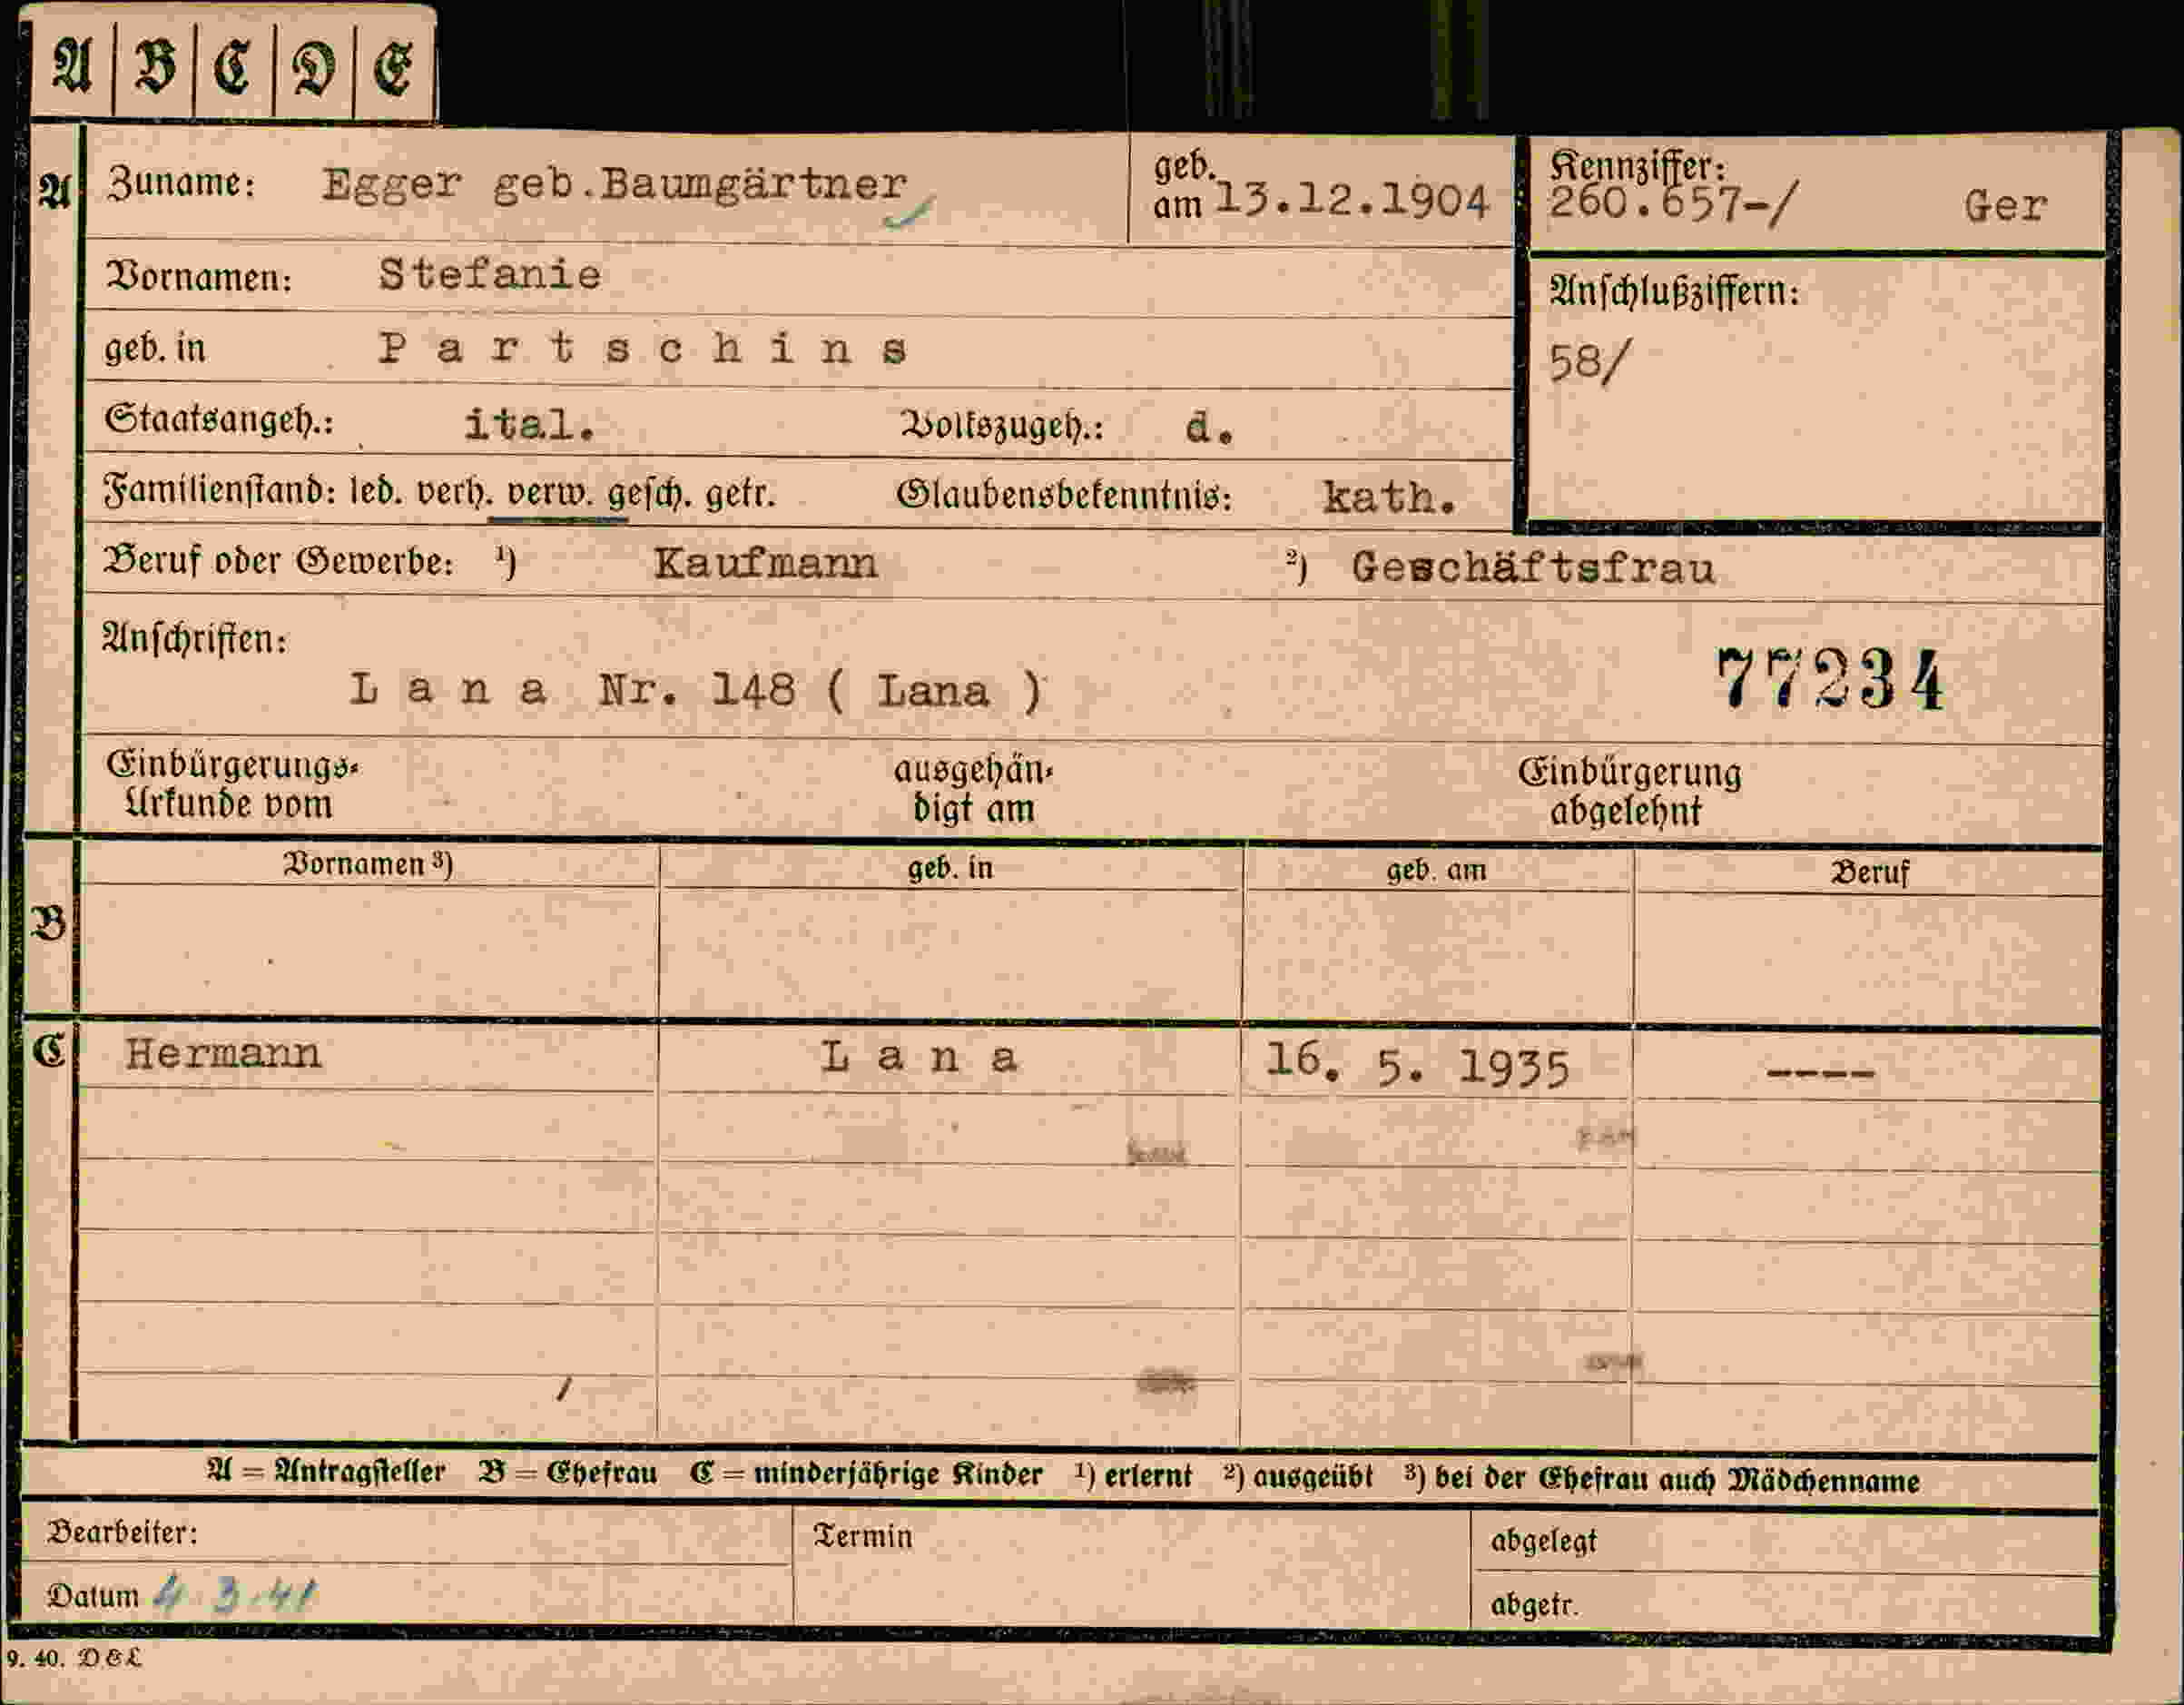 A B C D E
A Zuname: Egger geb.Baumgärtner geb. am 13.12.1904 Kennziffer: 260.657-/ Ger
Vornamen: Stefanie Anschlußziffern:
geb. in Partschins 58/
Staatsangeh.: ital. Volkszugeh.: d.
Familienstand: led. verh. verw. gesch. getr. Glaubensbekenntnis: kath.
Beruf oder Gewerbe: ¹) Kaufmann ²) Geschäftsfrau
Anschriften:
Lana Nr. 148 ( Lana ) 77234
Einbürgerungs- ausgehän- Einbürgerung
Urkunde vom digt am abgelehnt
Vornamen ³) geb. in geb. am Beruf
B
C Hermann Lana 16. 5. 1935 ----
A = Antragsteller B = Ehefrau C = minderjährige Kinder ¹) erlernt ²) ausgeübt ³) bei der Ehefrau auch Mädchenname
Bearbeiter: Termin abgelegt
Datum 4.3.41 abgetr.
9. 40. D&L